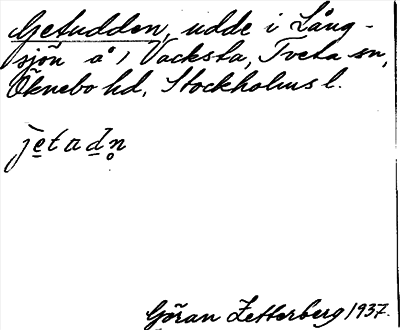 Getudden, udde i Lång-
sjön å 1 Vacksta, Tveta sn,
Öknebo hd, Stockholms l.
jetadn̥
Göran Zetterberg 1937.